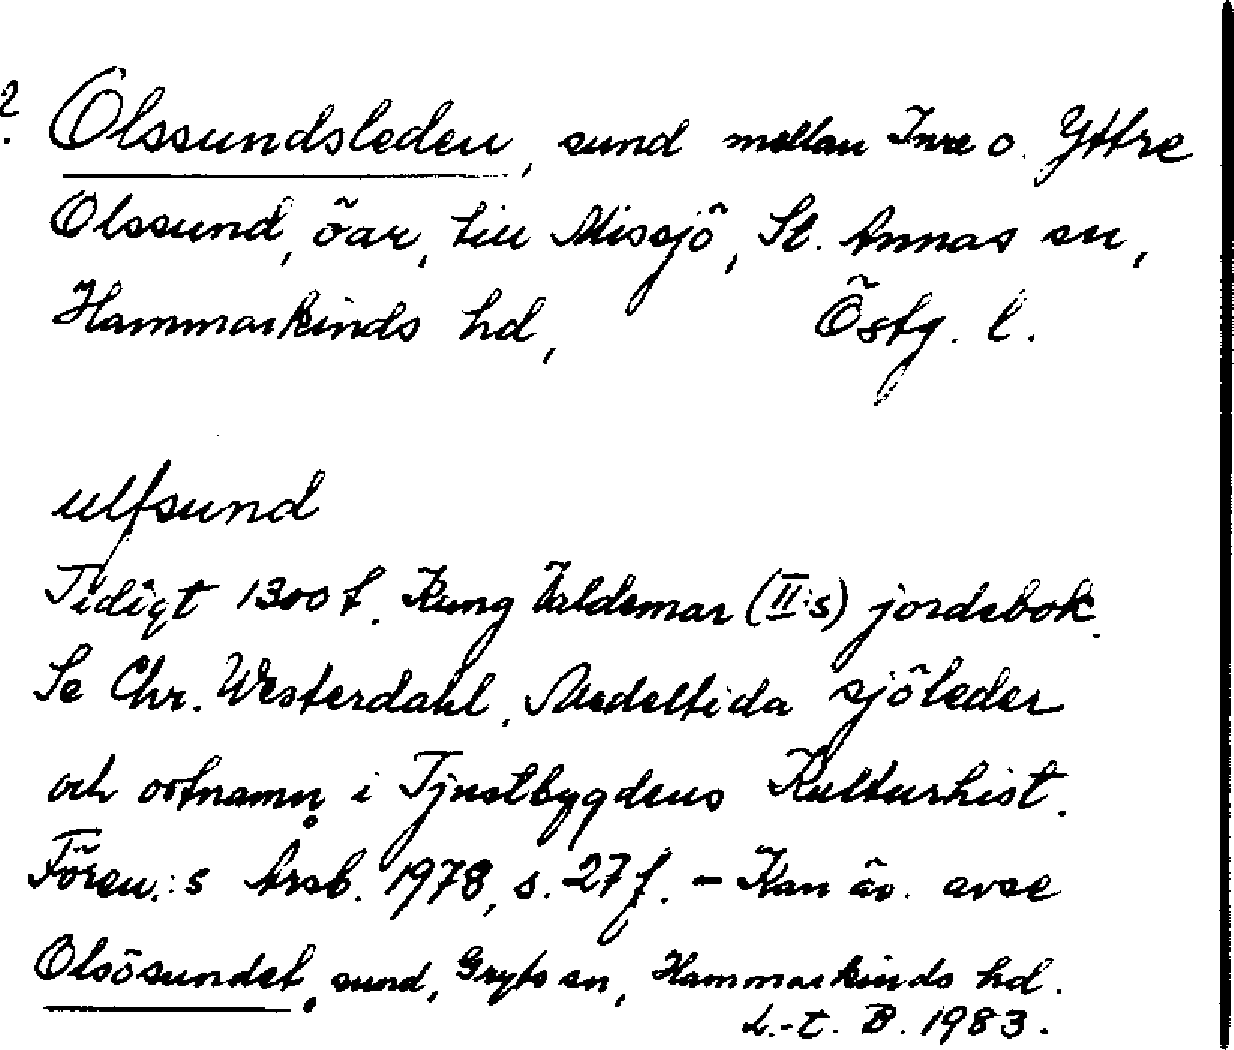 ? Olssundsleden, sund mellan Inre o. Yttre
Olssund, öar, till Missjö, St. Annas sn,
Hammarkinds hd, Östg. l.
ulfsund
Tidigt 1300 t. Kung Valdemar (II:s) jordebok.
Se Chr. Westerdahl, Medeltida sjöleder
och ortnamn i Tjustbygdens Kulturhist.
Fören.:s Årsb. 1978, s. 27 f. - Kan äv. avse
Olsösundet, sund, Gryts sn, Hammarkinds hd.
L.-t. B. 1983.